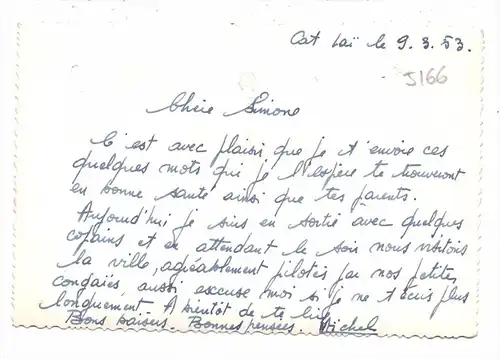 Cat Laï le 9.3.53.
J166
Chère Simone
C'est avec plaisir que je t'envoie ces
quelques mots qui je l'espère te trouveront
en bonne santé ainsi que tes parents.
Aujourd'hui je suis en sortie avec quelques
copains et en attendant le soir nous visitons
la ville, agréablement pilotés par nos petites
congaïes, aussi excuse moi si je ne t'écris plus
longuement. A bientôt de te lire
Bons baisers. Bonnes pensées. Michel